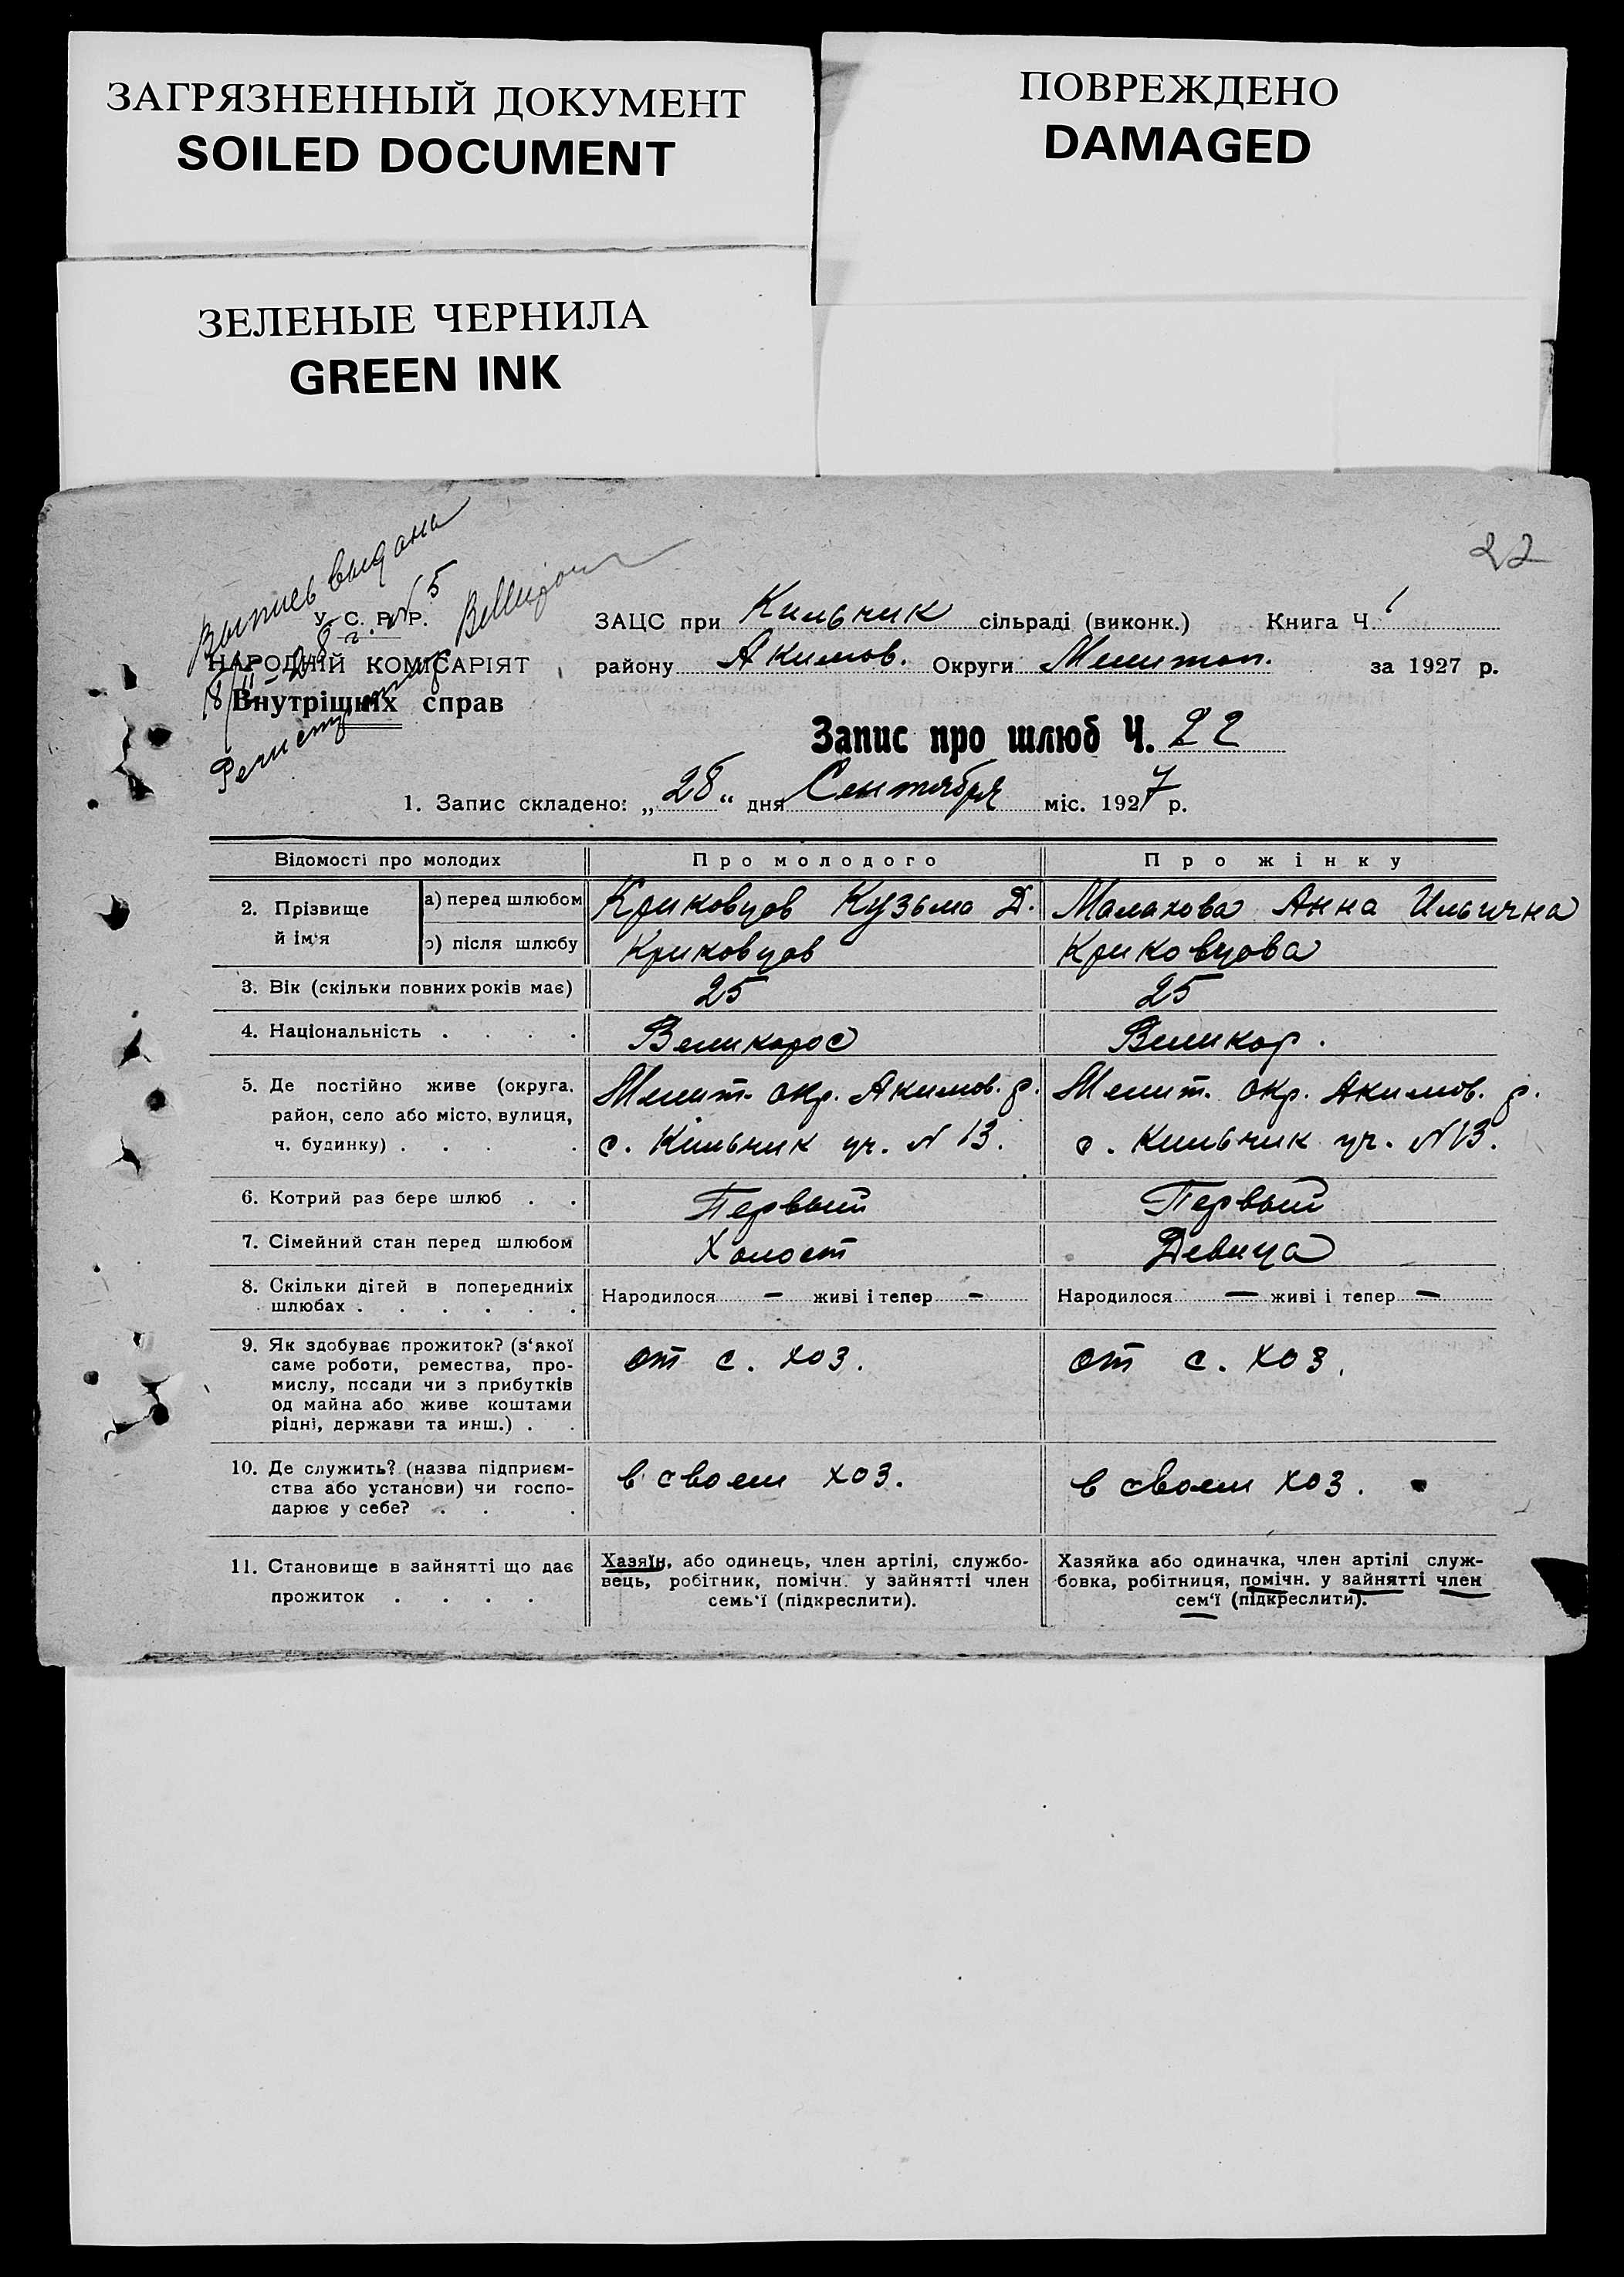 ЗАГРЯЗНЕННЫЙ ДОКУМЕНТ
SOILED DOCUMENT
ПОВРЕЖДЕНО
DAMAGED
ЗЕЛЕНЫЕ ЧЕРНИЛА
GREEN INK
22
Выпись выдана
18/II-28 г. № 5
Регистратор
У. С. Р. Р.
НАРОДНІЙ КОМІСАРІЯТ
Внутрішніх справ
ЗАЦС при Кильчик сільраді (виконк.) Книга Ч. 1
району Акимов. Округи Мелитоп. за 1927 р.
Запис про шлюб Ч. 22
1. Запис складено: „28“ дня Сентября міс. 1927 р.
Відомості про молодих Про молодого Про жінку
2. Прізвище й ім‘я а) перед шлюбом Криковцов Кузьма Д. Малахова Анна Ильична
після шлюбу Криковцов Криковцова
3. Вік (скільки повних років має) 25 25
4. Національність . . . . Великорос Великор.
5. Де постійно живе (округа, Мелит. окр. Акимов. р. Мелит. окр. Акимов. р.
район, село або місто, вулиця, с. Кильчик уч. № 13. с. Кильчик уч. № 13.
ч. будинку) . . . .
6. Котрий раз бере шлюб . . Первый Первый
7. Сімейний стан перед шлюбом Холост Девица
8. Скільки дітей в попередниіх Народилося — живі і тепер — Народилося — живі і тепер —
шлюбах . . . . . .
9. Як здобуває прожиток? (з‘якої от с. хоз. от с. хоз.
саме роботи, ремества, про-
мислу, посади чи з прибутків
од майна або живе коштами
рідні, держави та инш.) . .
10. Де служить? (назва підприєм- в своем хоз. в своем хоз.
ства або установи) чи госпо-
дарює у себе? . . .
11. Становище в зайнятті що дає
прожиток . . . .
Хазяїн, або одинець, член артілі, службо-
вець, робітник, помічн. у зайнятті член
семь‘ї (підкреслити).
Хазяйка або одиначка, член артілі служ-
бовка, робітниця, помічн. у зайнятті член
сем‘ї (підкреслити).